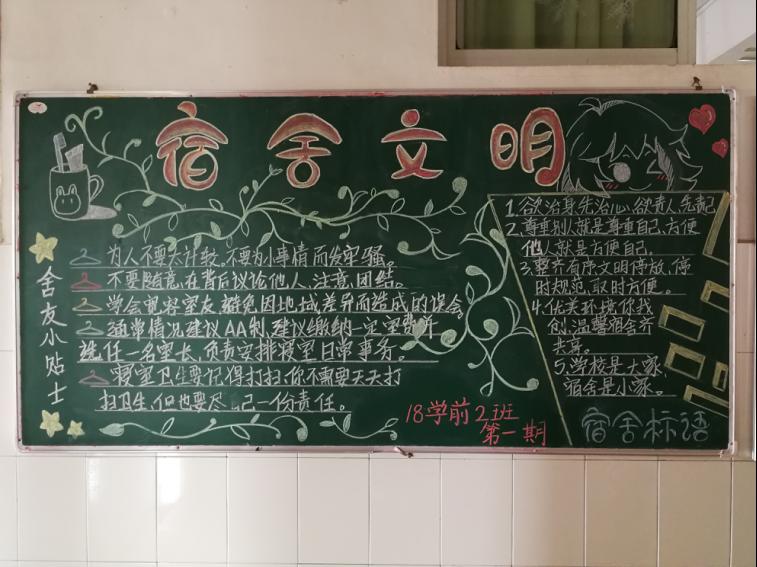 宿舍文明
舍友小贴士
为人不要太计较,不要为小事情而发牢骚。
不要随意在背后议论他人,注意团结。
学会宽容室友,避免因地域差异而造成的误会
通常情况建议AA制,建议缴纳一定室费并
选任一名室长,负责安排寝室日常事务。
寝室卫生要记得打扫,你不需要天天打
扫卫生,但也要尽自己一份责任。
18学前2班
第一期
1.欲治身先治心,欲责人先责己
2.尊重别人就是尊重自己,方便
他人就是方便自己.
3.整齐有序文明停放,停
时规范,取时方便。
4.优美环境你我
创,温馨宿舍齐
共享。
5.学校是大家,
宿舍是小家。
宿舍标语